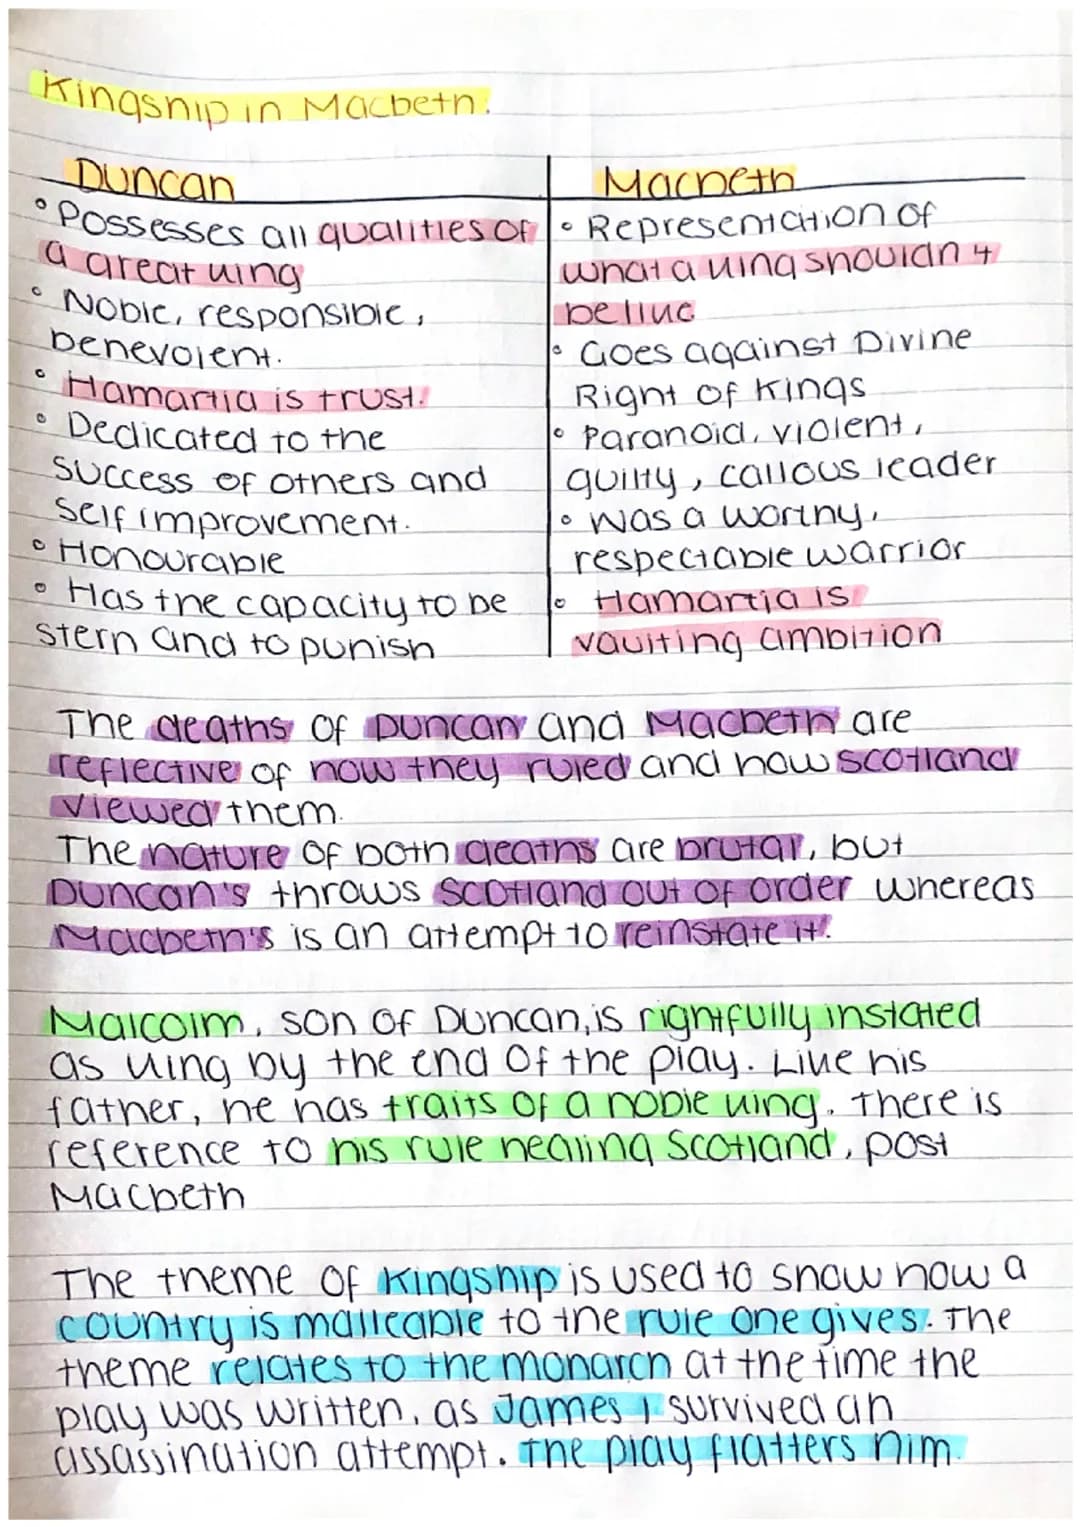 Kingship in Macbeth.
Duncan
° Possesses all qualities of
a great king
° Noble, responsible,
benevolent.
° Hamartia is trust.
° Dedicated to the
success of others and
self improvement.
° Honourable
° Has the capacity to be
stern and to punish
Macbeth
° Representation of
what a king shouldn't
be like
° Goes against Divine
Right of Kings
° Paranoid, violent,
guilty, callous leader
° Was a worthy,
respectable warrior
° Hamartia is
vaulting ambition
The deaths of Duncan and Macbeth are
reflective of how they ruled and how Scotland
viewed them.
The nature of both deaths are brutal, but
Duncan's throws Scotland out of order whereas
Macbeth's is an attempt to reinstate it.
Malcolm, son of Duncan, is rightfully instated
as king by the end of the play. Like his
father, he has traits of a noble king. There is
reference to his rule healing Scotland, post
Macbeth
The theme of Kingship is used to show how a
country is malleable to the rule one gives. The
theme relates to the monarch at the time the
play was written, as James I survived an
assassination attempt. The play flatters him.